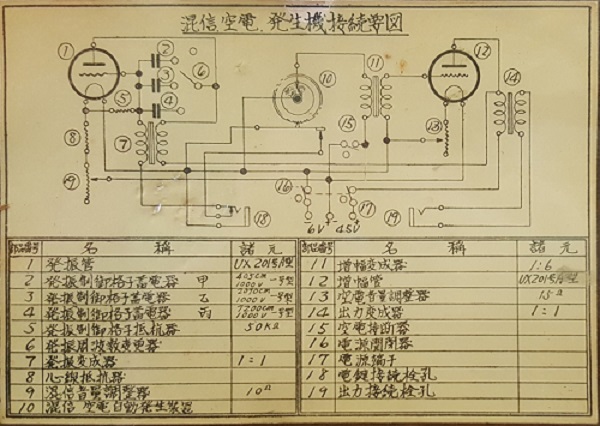 混信空電発生機接続要図
1
2
3
4
5
6
7
8
9
10
11
12
13
14
15
16
17
18
19
6V
45V
部品番号 名 稱 諸元
1 発振管 UX201号A型
2 発振制御格子蓄電器 甲 1000V一号型
3 発振制御格子蓄電器 乙 1000V一号型
4 発振制御格子蓄電器 丙 1000V一号型
5 発振制御格子抵抗器 50KΩ
6 発振周波数変更器
7 発振変成器 1:1
8 心線抵抗器
9 混信音量調整器 10Ω
10 混信 空電自動発生装置
部品番号 名 稱 諸元
11 増幅変成器 1:6
12 増幅管 UX201号A型
13 空電音量調整器 15Ω
14 出力変成器 1:1
15 空電接断器
16 電源開閉器
17 電源端子
18 電鍵接続栓孔
19 出力接続栓孔